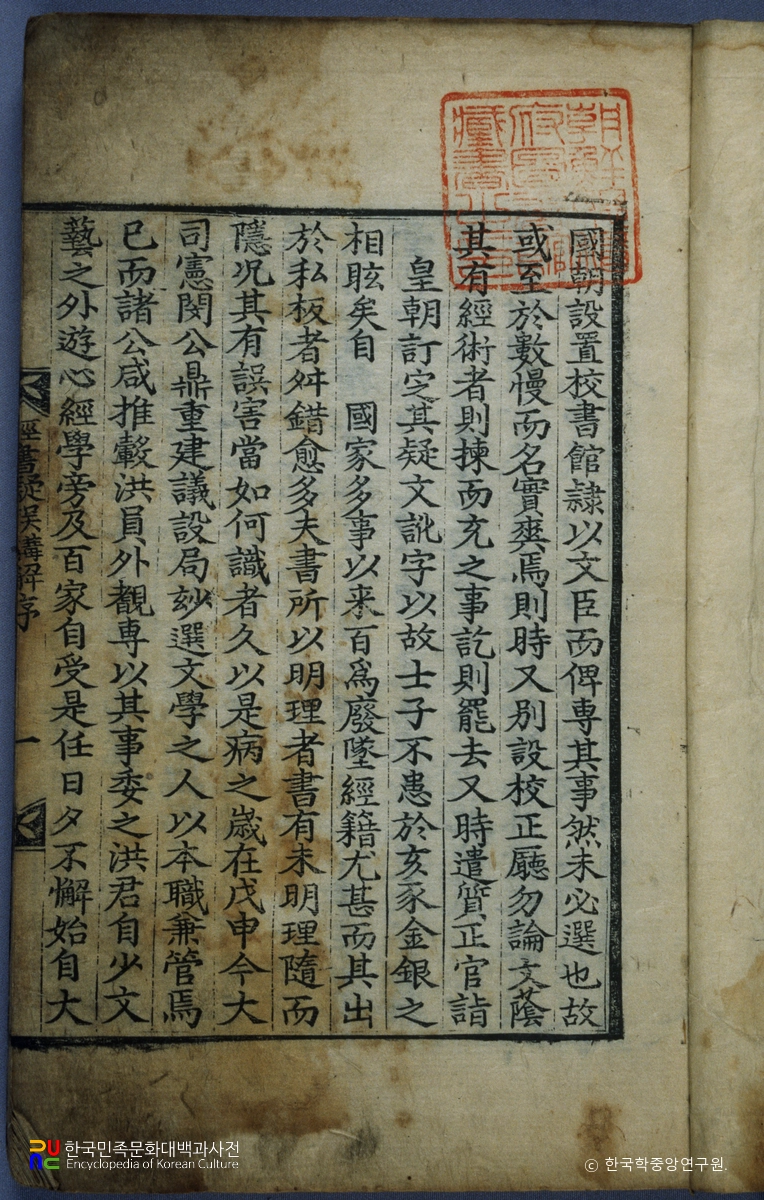 國朝設置校書館隷以文臣而俾專其事然未必選也故
或至於數慢而名實爽焉則時又別設校正廳勿論文蔭
其有經術者則揀而充之事訖則罷去又時遣質正官詣
皇朝訂定其疑文訛字以故士子不患於亥豕金銀之
相眩矣自 國家多事以來百爲廢墜經籍尤甚而其出
於私板者舛錯愈多夫書所以明理者書有未明理隨而
隱况其有誤害當如何識者久以是病之歲在戊申今大
司憲閔公鼎重建議設局玅選文學之人以本職兼管焉
已而諸公咸推轂洪員外覩專以其事委之洪君自少文
藝之外遊心經學旁及百家自受是任日夕不懈始自大
經書疑誤講解序
一
한국민족문화대백과사전
Encyclopedia of Korean Culture
© 한국학중앙연구원